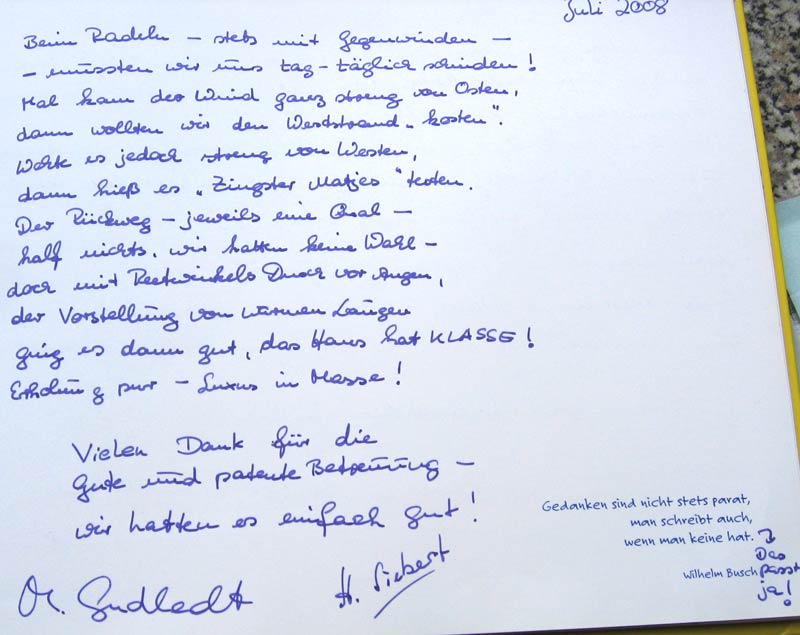 Juli 2008
Beim Radeln – stets mit Gegenwinden –
– mussten wir uns tag-täglich schinden!
Mal kam der Wind ganz streng von Osten,
dann wollten wir den Weststrand „kosten".
Wehte es jedoch streng von Westen,
dann hieß es „Zingster Matjes" testen.
Der Rückweg – jeweils eine Qual –
half nichts, wir hatten keine Wahl –
doch mit Reetwinkels Dusch vor Augen,
der Vorstellung von warmen Laugen
ging es dann gut, das Haus hat KLASSE!
Erholung pur – Luxus in Masse!
Vielen Dank für die
gute und patente Betreuung –
wir hatten es einfach gut!
H. Siebert
Gedanken sind nicht stets parat,
man schreibt auch,
wenn man keine hat.
Wilhelm Busch
Das
passt
ja!